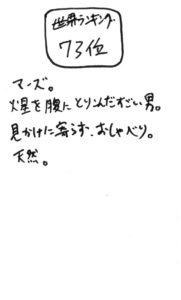 世界ランキング
73位
マーズ。
火星を腹にとりんだすごい男。
見かけに寄らず、おしゃべり。
天然。